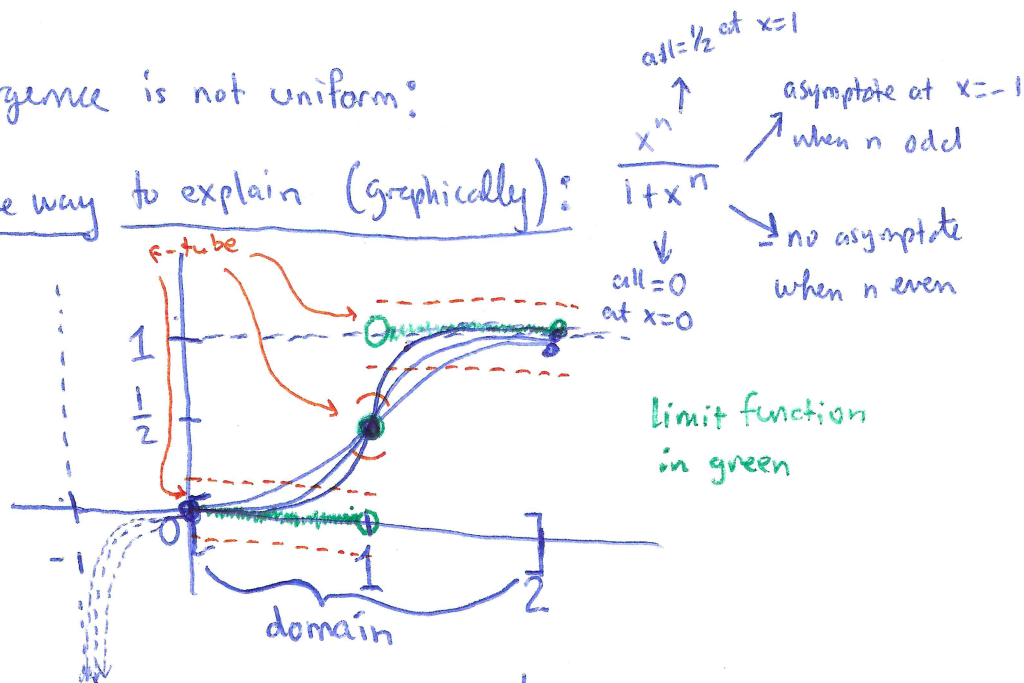 rgence is not uniform:
e way to explain (graphically):
all=½ at x=1
x^n
1+x^n
asymptote at x=-1
when n odd
no asymptote
when n even
all=0
at x=0
ε-tube
1
1/2
0
-1
1
2
domain
Limit function
in green